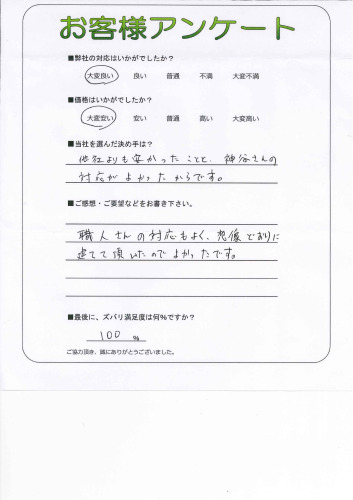 お客様アンケート
■弊社の対応はいかがでしたか?
大変良い 良い 普通 不満 大変不満
■価格はいかがでしたか?
大変安い 安い 普通 高い 大変高い
■当社を選んだ決め手は?
他社よりも安かったことと、神谷さんの
対応がよかったからです。
■ご感想・ご要望などをお書き下さい。
職人さんの対応もよく、想像どおりに
建てて頂いたのでよかったです。
■最後に、ズバリ満足度は何%ですか?
100 %
ご協力頂き、誠にありがとうございました。